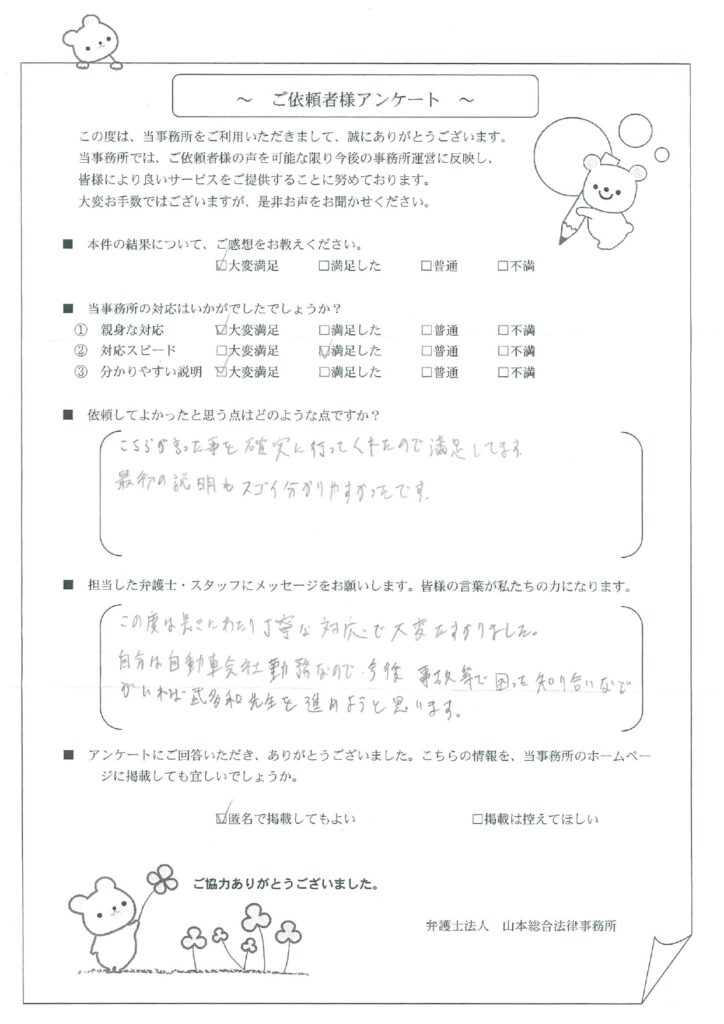 ～ ご依頼者様アンケート ～
この度は、当事務所をご利用いただきまして、誠にありがとうございます。
当事務所では、ご依頼者様の声を可能な限り今後の事務所運営に反映し、
皆様により良いサービスをご提供することに努めております。
大変お手数ではございますが、是非お声をお聞かせください。
■ 本件の結果について、ご感想をお教えください。
☑大変満足 □満足した □普通 □不満
■ 当事務所の対応はいかがでしたでしょうか？
① 親身な対応 ☑大変満足 □満足した □普通 □不満
② 対応スピード □大変満足 ☑満足した □普通 □不満
③ 分かりやすい説明 ☑大変満足 □満足した □普通 □不満
■ 依頼してよかったと思う点はどのような点ですか？
こちらが言った事を確実に行ってくれたので満足してます
最初の説明もスゴイ分かりやすかったです.
■ 担当した弁護士・スタッフにメッセージをお願いします。皆様の言葉が私たちの力になります。
この度は長きにわたり丁寧な対応で大変たすかりました。
自分は自動車会社勤務なので今後 事故等で困った知り合いなど
がいれば 武多和先生を進めようと思います。
■ アンケートにご回答いただき、ありがとうございました。こちらの情報を、当事務所のホームペー
ジに掲載しても宜しいでしょうか。
☑匿名で掲載してもよい □掲載は控えてほしい
ご協力ありがとうございました。
弁護士法人 山本総合法律事務所